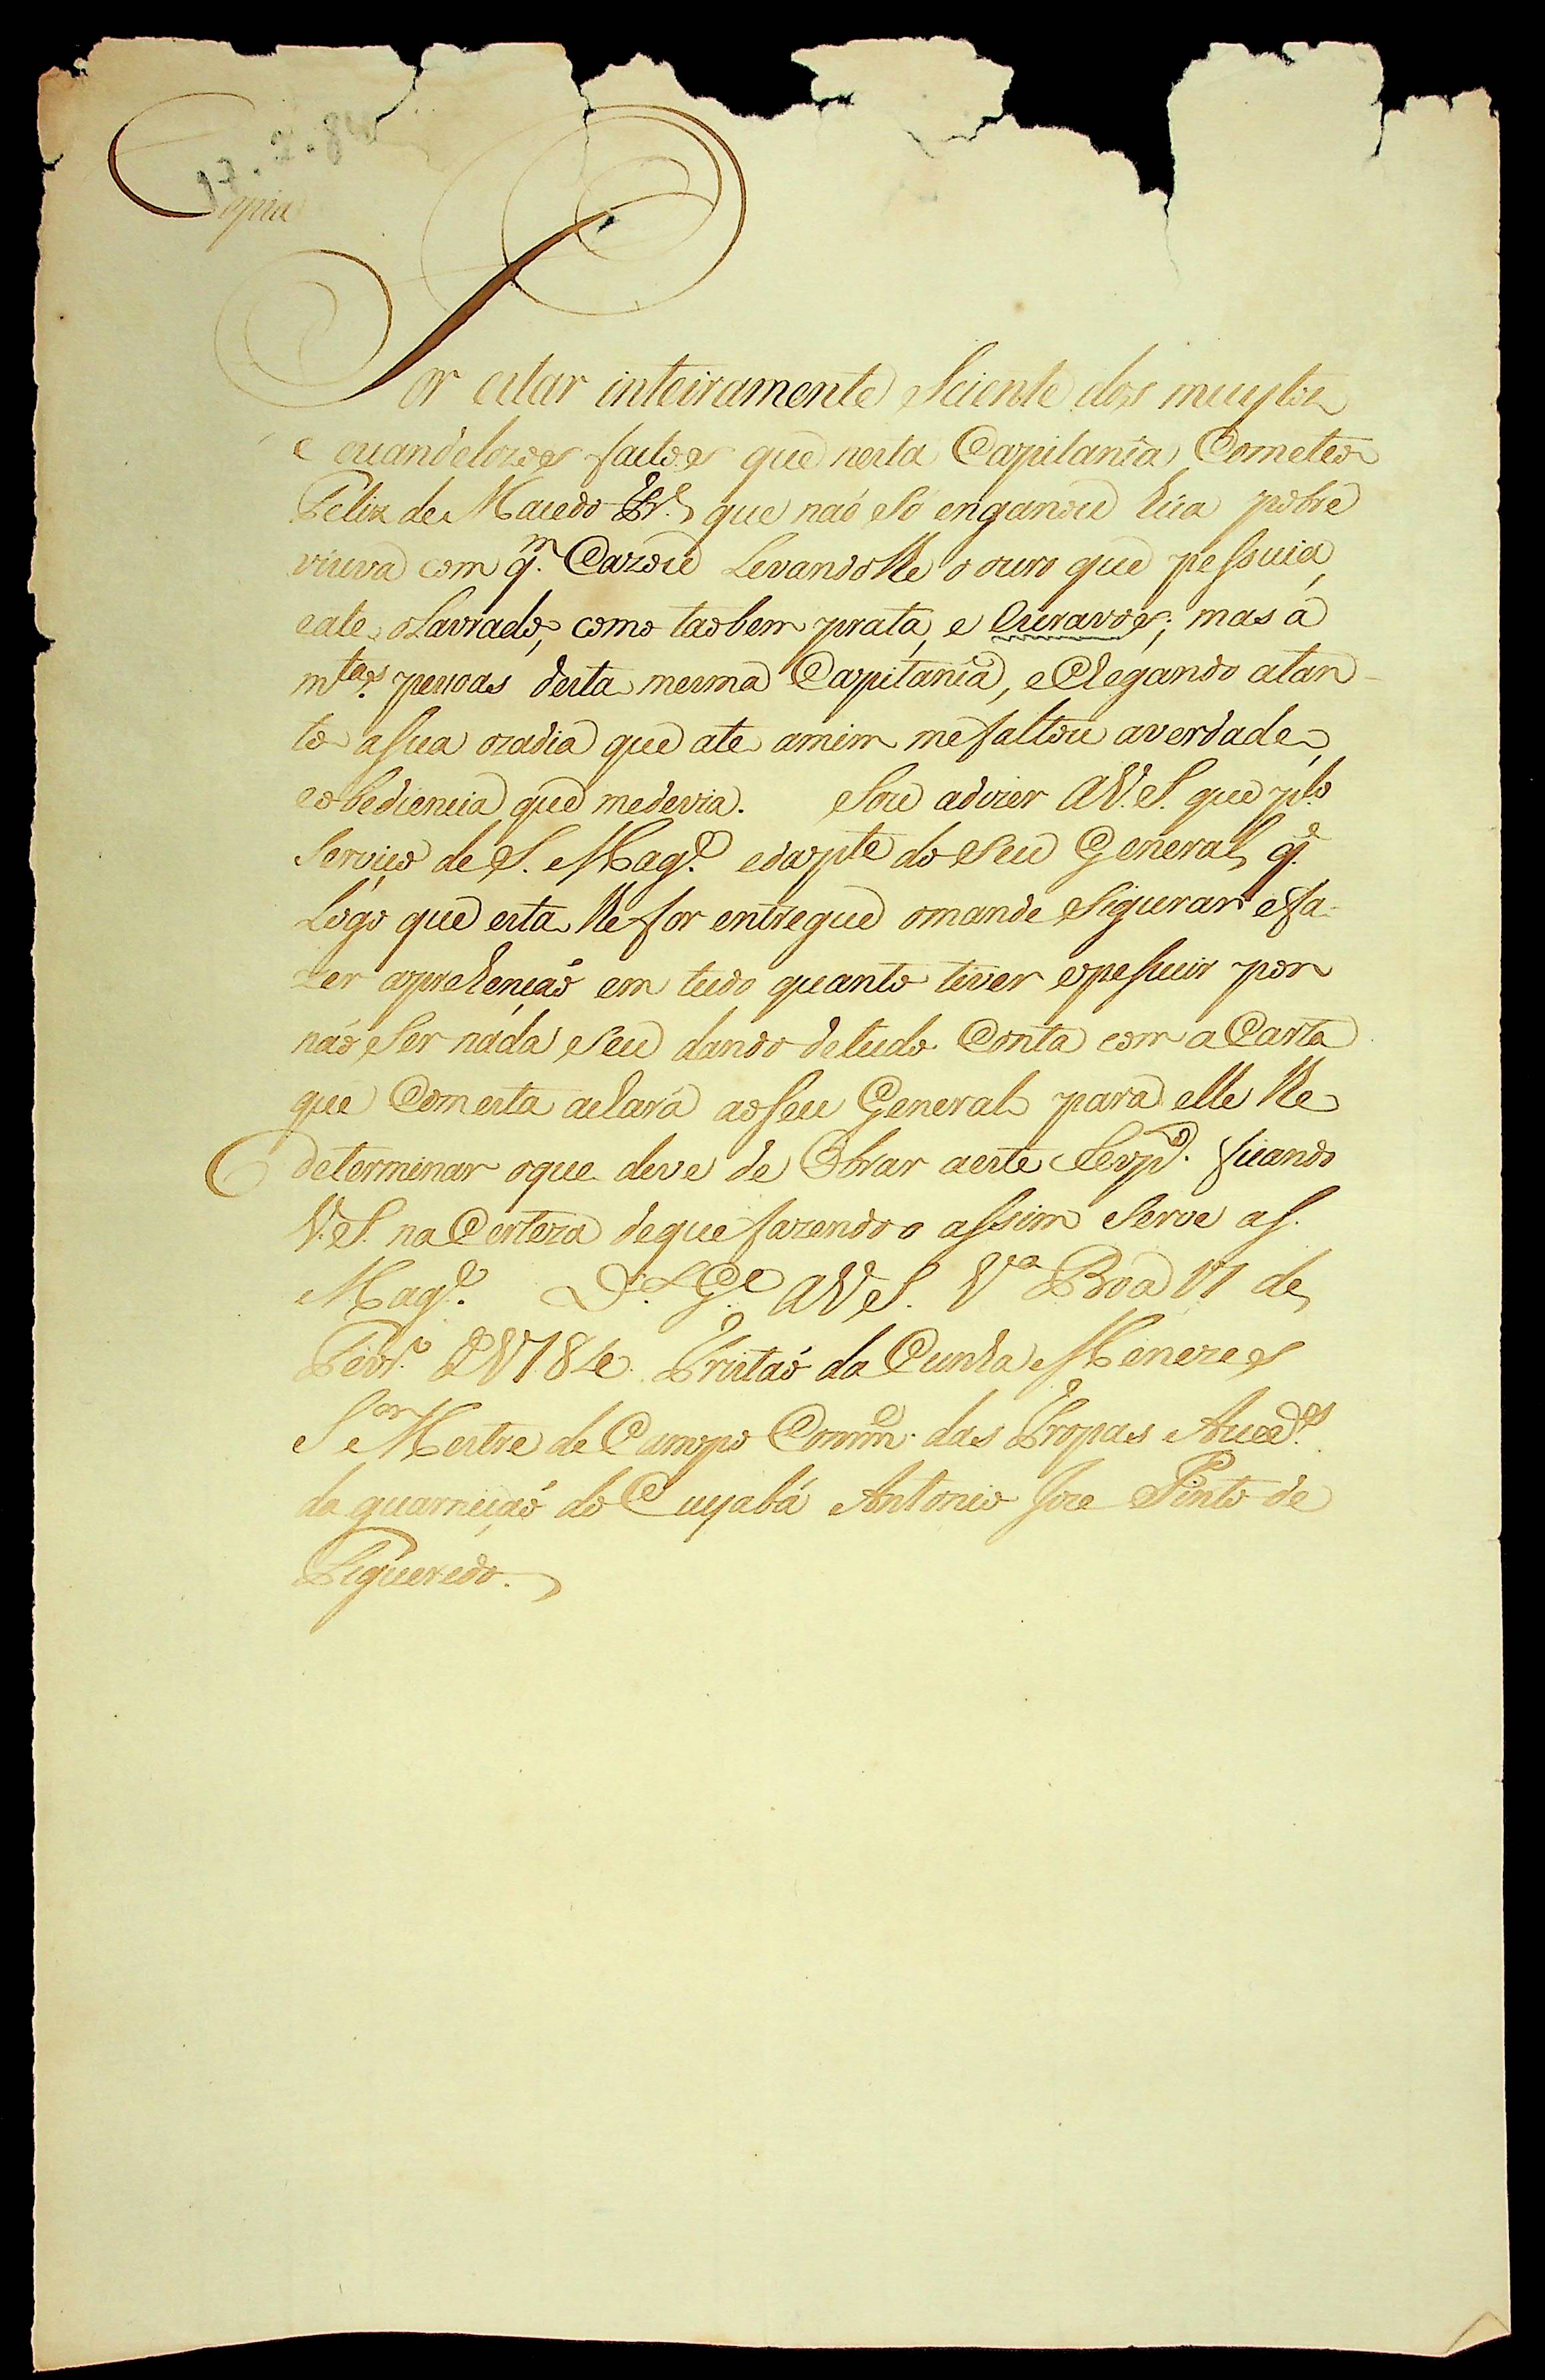 17.2.84
Copia
Por estar inteiramente Sciente dos muytos
e escandelozos factos que nesta Capitania Cometeo
Felix de Macedo que naó Só enganou húa pobre
viuva com q.m Cazou Levandolhe o ouro que pessuia,
eate oLavrado, como taobem prata, e Curavos; mas á
m.tas pessoas desta mesma Capitania, eChegando atan-
to asua ozadia que ate amim mefaltou averdade,
eobediencia que medevia. Sou adizer AV.S. que plo
Serviço de S. Mag.e edapte do Seu General, q.e
Logo que esta lhe for entregue omande Sigurar efa-
zer aprehençaó em tudo quanto tiver epessuir por
náo Ser náda Seu dando detudo Conta com aCarta
que Comesta achará aoseu General para elle lhe
determinar oque deve de Obrar aeste Resp.o ficando
V.S. na Certeza deque fazendoo assim Serve aS.
Mag.e D.s G.e AVS. V.a Boa 17 de
Fevr.o d 1784. Tristaó da Cunha Menezes
S.or Mestre de Campo Comm.e das Tropas Auced.es
da guarniçaó do Cuyabá Antonio Joze Pinto de
Figueredo.